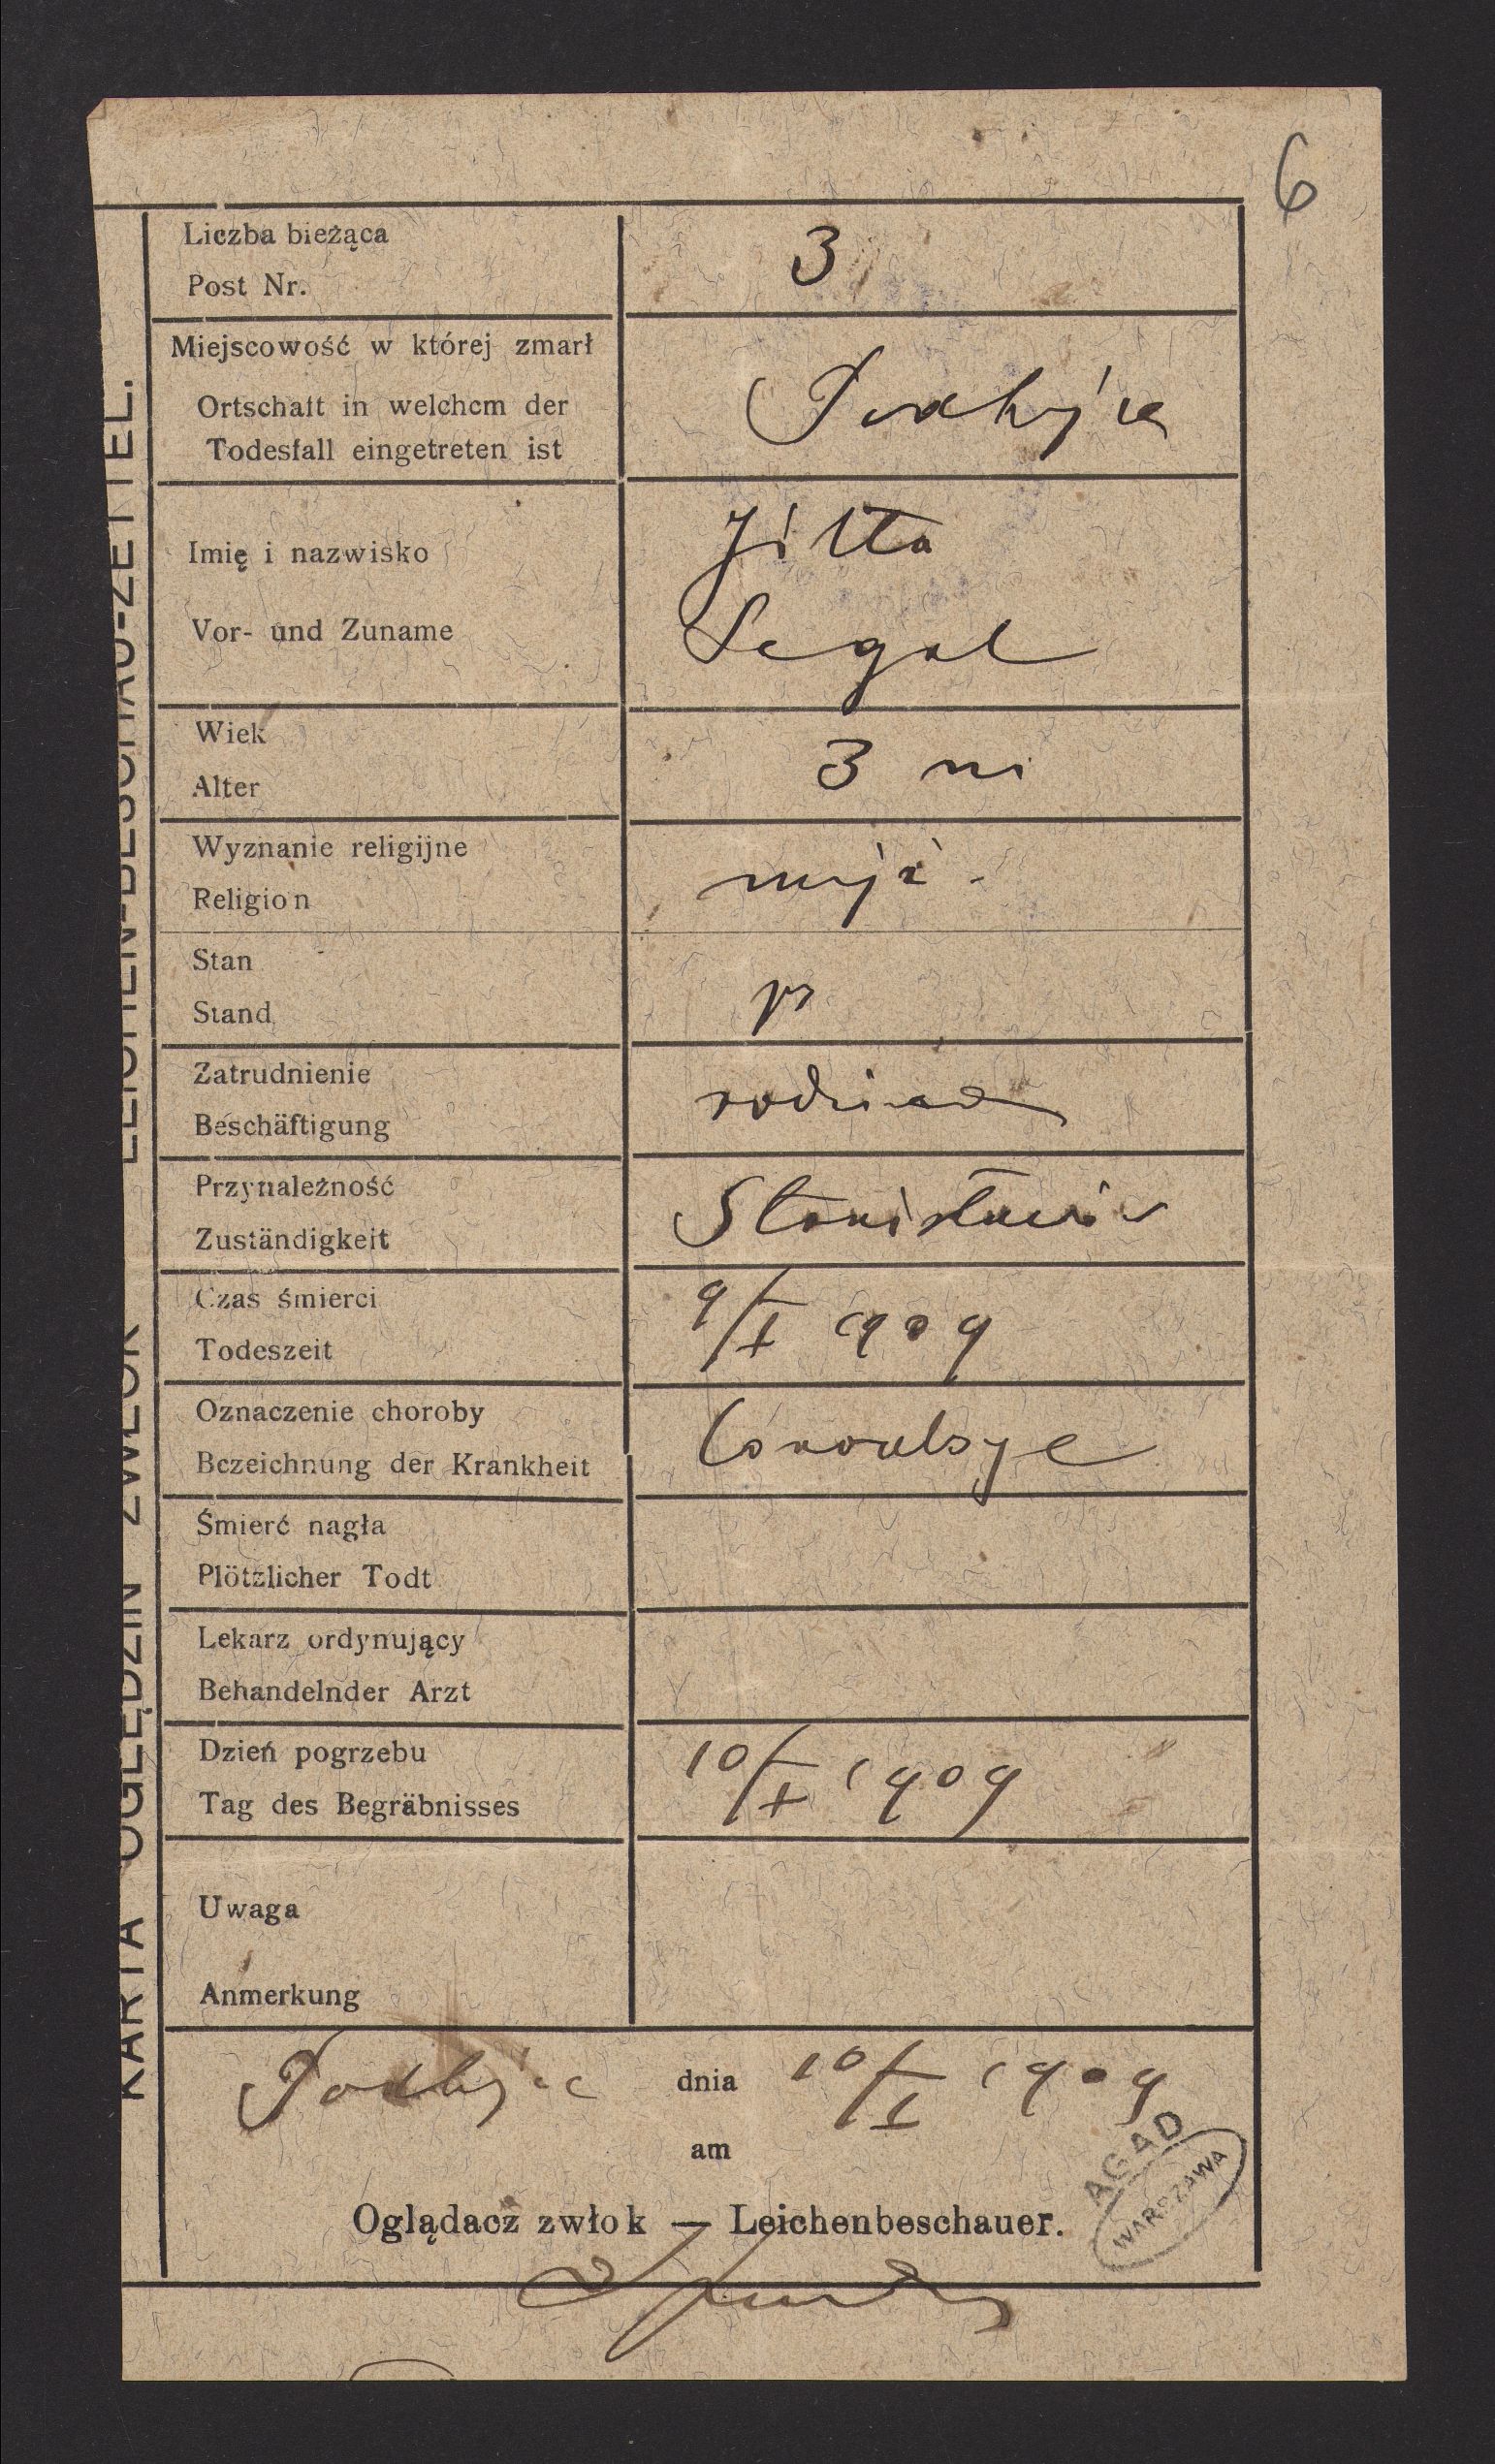 6
Liczba bieżąca
Post Nr.
3
Miejscowość w której zmarł
Ortschaft in welchem der
Todesfall eingetreten ist
Podhajce
Imię i nazwisko
Vor- und Zuname
Jitta
Segal
Wiek
Alter
3 m
Wyznanie religijne
Religion
mojż.
Stan
Stand
Zatrudnienie
Beschäftigung
Przynależność
Zuständigkeit
Stanisławów
Czas śmierci
Todeszeit
9/I 1909
Oznaczenie choroby
Bezeichnung der Krankheit
Convulsye
Śmierć nagła
Plötzlicher Todt
Lekarz ordynujący
Behandelnder Arzt
Dzień pogrzebu
Tag des Begräbnisses
10/I 1909
Uwaga
Anmerkung
Podhajce dnia 10/I 1909
am
Oglądacz zwłok — Leichenbeschauer.
AGAD
WARSZAWA
KARTA OGLĘDZIN ZWŁOK LEICHEN-BESCHAU-ZETTEL.